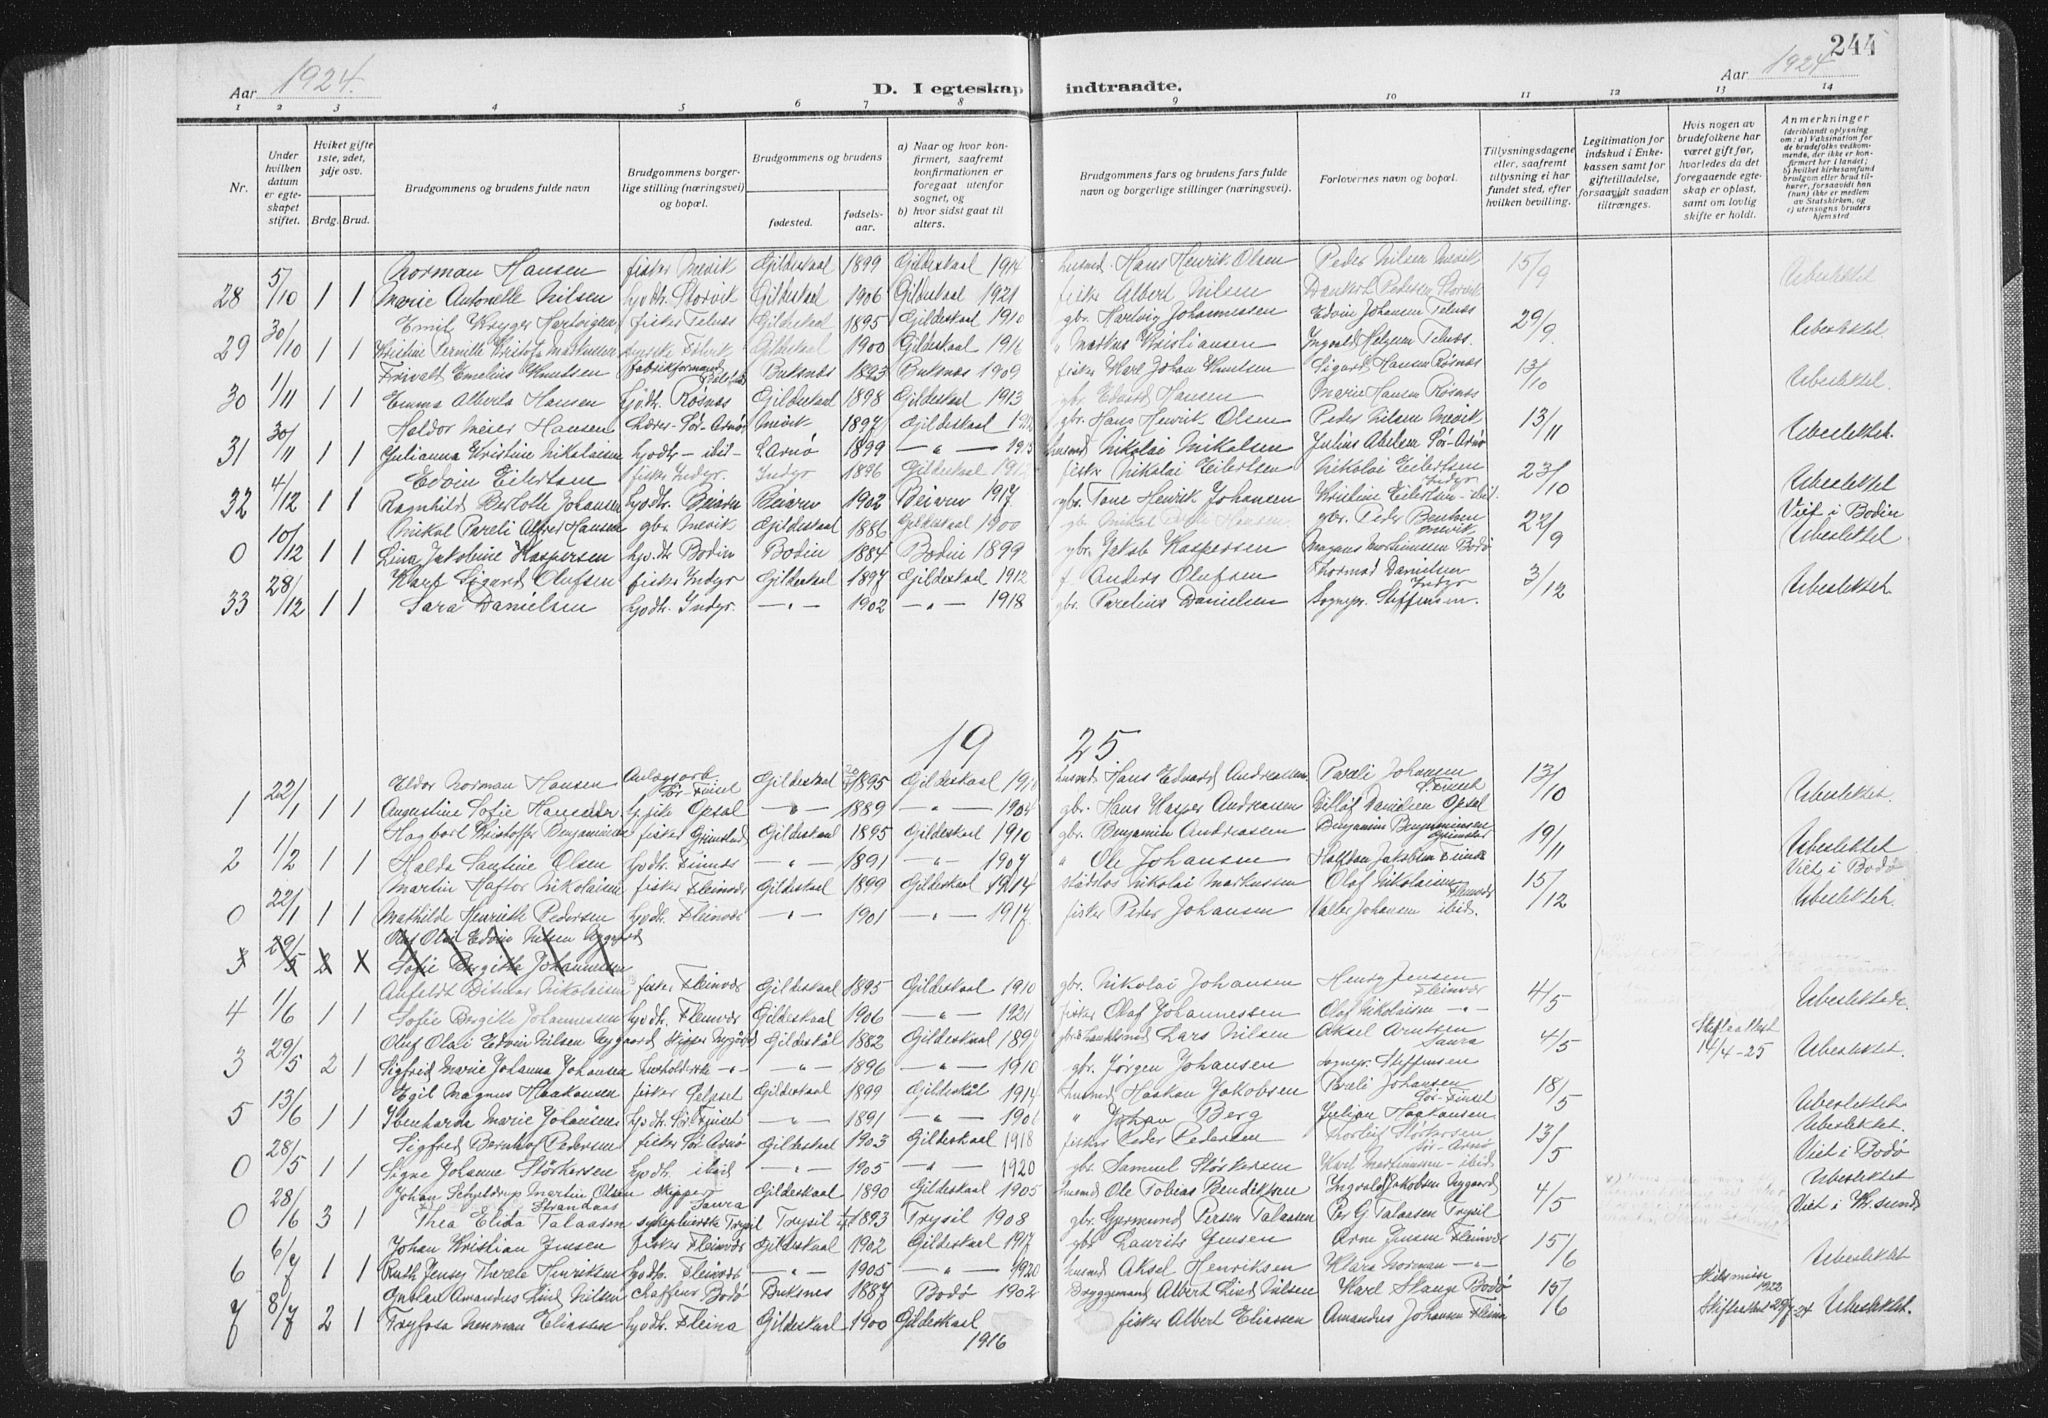 244
Aar 1924.
D. I egteskap indtraadte.
Aar 1924.
1 2 3 4 5 6 7 8 9 10 11 12 13 14
Nr.
Under hvilken datum er egteskapet stiftet.
Hviket gifte 1ste, 2det, 3dje osv.
Brdg. Brud.
Brudgommens og brudens fulde navn
Brudgommens borgerlige stilling (næringsvei) og bopæl.
Brudgommens og brudens
fødested.
fødselsaar.
a) Naar og hvor konfirmert, saafremt konfirmationen er foregaat utenfor sognet, og
b) hvor sidst gaat til alters.
Brudgommens fars og brudens fars fulde navn og borgerlige stillinger (næringsvei).
Forlovernes navn og bopæl.
Tillysningsdagene eller, saafremt tillysning ei har fundet sted, efter hvilken bevilling.
Legitimation for indskud i Enkekassen samt for giftetilladelse, forsaavidt saadan tiltrænges.
Hvis nogen av brudefolkene har været gift før, hvorledes da det foregaaende egteskap er opløst, samt om lovlig skifte er holdt.
Anmerkninger
(deriblandt oplysning om: a) Vaksination for de brudefolks vedkommende, der ikke er konfirmert her i landet; b) hvilket kirkesamfund brudgom eller brud tilhører, forsaavidt han (hun) ikke er medlem av Statskirken, og c) utensogns bruders hjemsted
5/10 Norman Hansen fisker Mevik Gildeskaal 1899 Gildeskaal 1914 husmd. Hans Henrik Olsen Peder Nilsen Mevik 15/9
28 1 1 Marie Antonette Nilsen hjvdtr. Storvik Gildeskaal 1906 Gildeskaal 1921 fisker Albert Nilsen Dankert Pedersen Storvik Ubeslektet
30/10 Emil Kryger Hartvigsen fisker Telnes Gildeskaal 1895 Gildeskaal 1910 gbr. Hartvig Johannessen Edvin Johansen Telnes 29/9
29 1 1 Kristine Pernille Kristofa Markussen Gildeskaal 1900 Gildeskaal 1916 " Markus Kristiansen Ingvald Helgesen Telnes. Ubeslektet.
1/11 Frivalt Emelius Knutsen fabrikformand Buksnes 1893 Buksnes 1909 fisker Karl Johan Knutsen Sigurd Hansen Røsnes 13/10
30 1 1 Emma Alberta Hansen hjvdtr. Røsnes Gildeskaal 1898 Gildeskaal 1913 gbr. Edvard Hansen Marie Hansen Røsnes Ubeslektet.
30/11 Haldor Meier Hansen Lærer Sør-Arnø Mevik 1897 Gildeskaal gbr. Hans Henrik Olsen Peder Nilsen Mevik 13/11
31 1 1 Julianna Kristine Nikolaisen hjvdtr – ibid – S. Arnø 1899 – " – 1915 husmd Nikolai Nikolsen Julius Abelsen Sør-Arnø Ubeslektet.
4/12 Edvin Eilertsen fisker Indyr Indyr 1896 Gildeskaal fisker Nikolai Eilertsen Nikolai Eilertsen Indyr 23/10
32 1 1 Ragnhild Bertotte Johansen hjvdtr. Beiarn Beiarn 1902 Beiarn 1917. gbr. Tone Henrik Johansen Kristine Eilertsen – ibid. Ubeslektet
10/12 Mikal Pareli Alfred Hansen gbr. Mevik Gildeskaal 1886 Gildeskaal 1900 gbr. Mikal Hansen gbr. Peder Bentsen Mevik 22/9 Viet i Bodin
0 1 1 Lina Jakobine Kaspersen hjvdtr Bodin Bodin 1884 Bodin 1899 gbr. Jakob Kaspersen Magnus Mortinussen Bodø Ubeslektet
28/12 Karl Sigurd Olufsen fisker Indyr Gildeskaal 1897 Gildeskaal 1912 f. Anders Olufsen Thormod Danielsen Indyr 3/12
33 1 1 Sara Danielsen hjvdtr. Indyr. – " – 1902 – " – 1918 gbr. Parelius Danielsen Sognepr. Steffensen. Ubeslektet.
19 25
22/1 Eldor Norman Hansen Anlægsarb. Sør-Finset Gildeskaal 1895 Gildeskaal husmd. Hans Edvard Andreassen Pareli Johansen S. Finset 13/10
1 1 1 Augustine Sofie Hansen Opsal – " – 1889 – " – 1904 gbr. Hans Kasper Andreasen Danielsen Opsal Ubeslektet.
1/2 Hagbart Kristoffer Benjaminsen fisker Grimstad Gildeskaal 1895 Gildeskaal 1910 gbr. Benjamin Andreassen Benjamin Benjaminsen Grimstad 19/11
2 1 1 Halda Santine Olsen hjvdtr. Finnes – " – 1891 – " – 1907 " Ole Johansen Halfdan Jakobsen Finnes Ubeslektet
22/1 Martin Haftor Nikolaisen fisker Fleinvær Gildeskaal 1899 Gildeskaal 1914 Nikolai Markussen Olaf Nikolaisen Fleinvær 15/12 Viet i Bodø
0 1 1 Mathilde Henriette Pedersen hjvdtr. Fleinvær – " – 1901 – " – 1917. fisker Peder Johansen Valler Johansen ibid. Ubeslektet.
3 29/5 2 1 Oluf Olai Edvin Nilsen Nygaard
Sofie Bergitte Johannessen
1/6 Anfeldt Ditmar Nikolaisen fisker Fleinvær Gildeskaal 1895 Gildeskaal 1910 gbr. Nikolai Johansen Henry Jensen Fleinvær 4/5
4 1 1 Sofie Bergitte Johannessen hjvdtr. Fleinvær Gildeskaal 1906 – " – 1921 fisker Olaf Johannessen Olaf Nikolaisen – " – Ubeslektede.
29/5 Oluf Olai Edvin Nilsen Nygaard Skipper Nygård Gildeskål 1882 Gildeskaal gbr. & handelsmd Lars Nilsen Aksel Arntsen Saura 4/5 Skifteattest 14/4-25
3 2 1 Sigfrid Marie Johanna Johansen – " – – " – 1896 – " – 1910 gbr. Jørgen Johansen Sognepr. Steffensen Ubeslektet.
13/6 Egil Magnus Haakonsen fisker Gildeskaal 1899 Gildeskål 1914 husmd Haakon Jakobsen Pareli Johansen Sør-Finset 18/5
5 1 1 Ibenharda Marie Johansen hjvdtr. Sr. Finset – " – 1891 – " – " Johan Berg Julian Haakonsen Ubeslektet.
28/5 Sigfred Bernhof Pedersen fisker Sør Arnø Gildeskaal 1903 Gildeskaal 1918 fisker Peder Pedersen Thorleif Størkersen Sør-Arnø 13/5 Ubeslektet.
0 1 1 Signe Johanne Størkersen hjvdtr. ibid – " – 1905 – " – 1920 gbr. Samuel Størkersen Karl Martinussen – ibid Viet i Bodø
28/6 Johan Schjeldrup Martin Olsen Strandaas Skipper Saura Gildeskaal 1890 Gildeskaal 1905 husmd Ole Tobias Bendiktsen Ingvald Jakobsen Nygaard 4/5 Ubeslektet
0 3 1 Thea Elida Talaasen sykepleierske Trysil Trysil 1893 Trysil 1908 gbr. Germund Persen Talaasen Per G. Talaasen Trysil Viet i Kr.sund
6/7 Johan Kristian Jensen fisker Fleinvær Gildeskaal 1902 Gildeskaal 1917 gbr Laurits Jensen Arne Jensen Fleinvær 15/6
6 1 1 Ruth Jensy Therese Henriksen hjvdtr. Fleinvær – " – 1905 – " – 1920 husmd Aksel Henriksen Klara Norman – " – Ubeslektet
8/7 Amandus Lind Nilsen Chaffeur Bodø Buksnes 1887 Bodø 1902 Bryggemand Albert Lind Nilsen Karl Skauge Bodø 15/6 Skilsmisse 1923
7 2 1 Tryfosa Norman Eliassen hjvdtr. Fleina Gildeskaal 1900 Gildeskaal 1916 fisker Albert Eliassen Amandus Johansen Fleina Skifteattest 29/7-24 Ubeslektet.